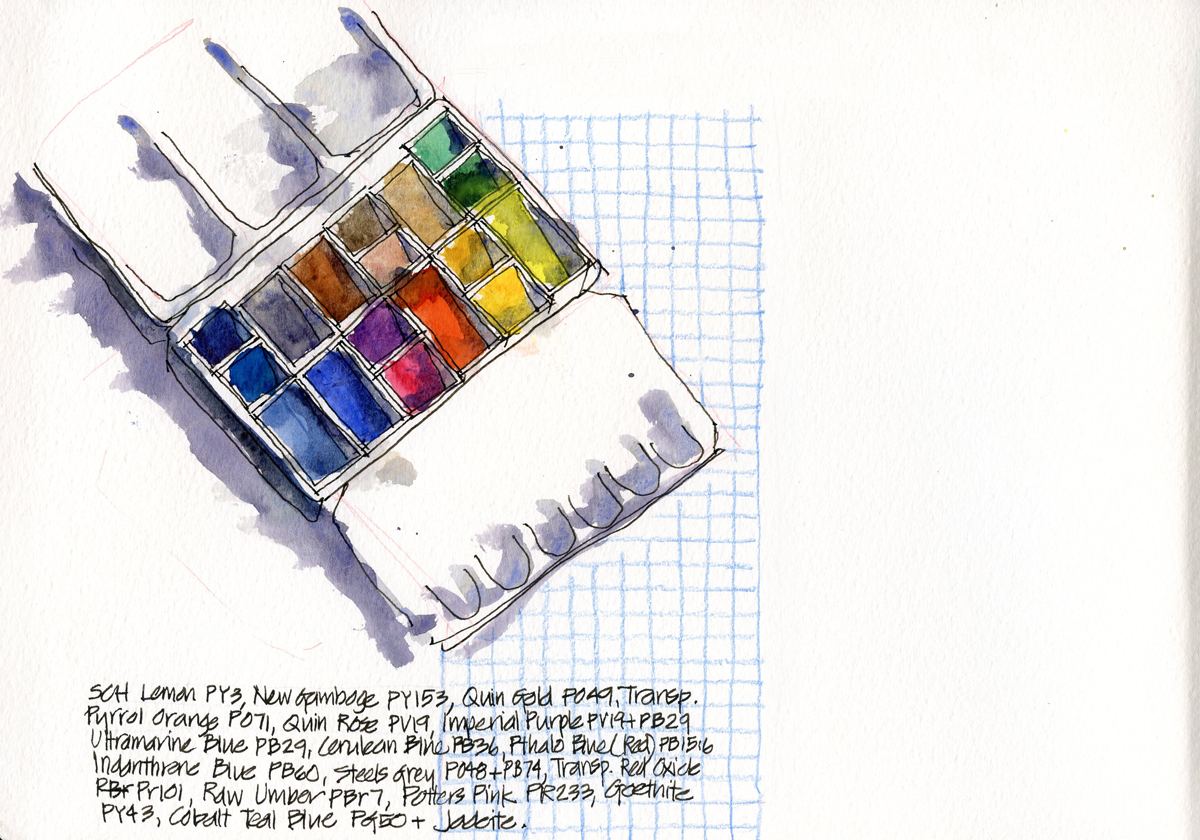 SCH Lemon PY3, New Gamboge PY153, Quin Gold PO49, Transp.
Pyrrol Orange PO71, Quin Rose PV19, Imperial Purple PV19+PB29
Ultramarine Blue PB29, Cerulean Blue PB36, Pthalo Blue (Red) PB15:6
Indanthrene Blue PB60, Steels Grey PO48+PB74, Transp. Red Oxide
PBr Pr101, Raw Umber PBr7, Potters Pink PR233, Goethite
PY43, Cobalt Teal Blue PG50 + Jadeite.